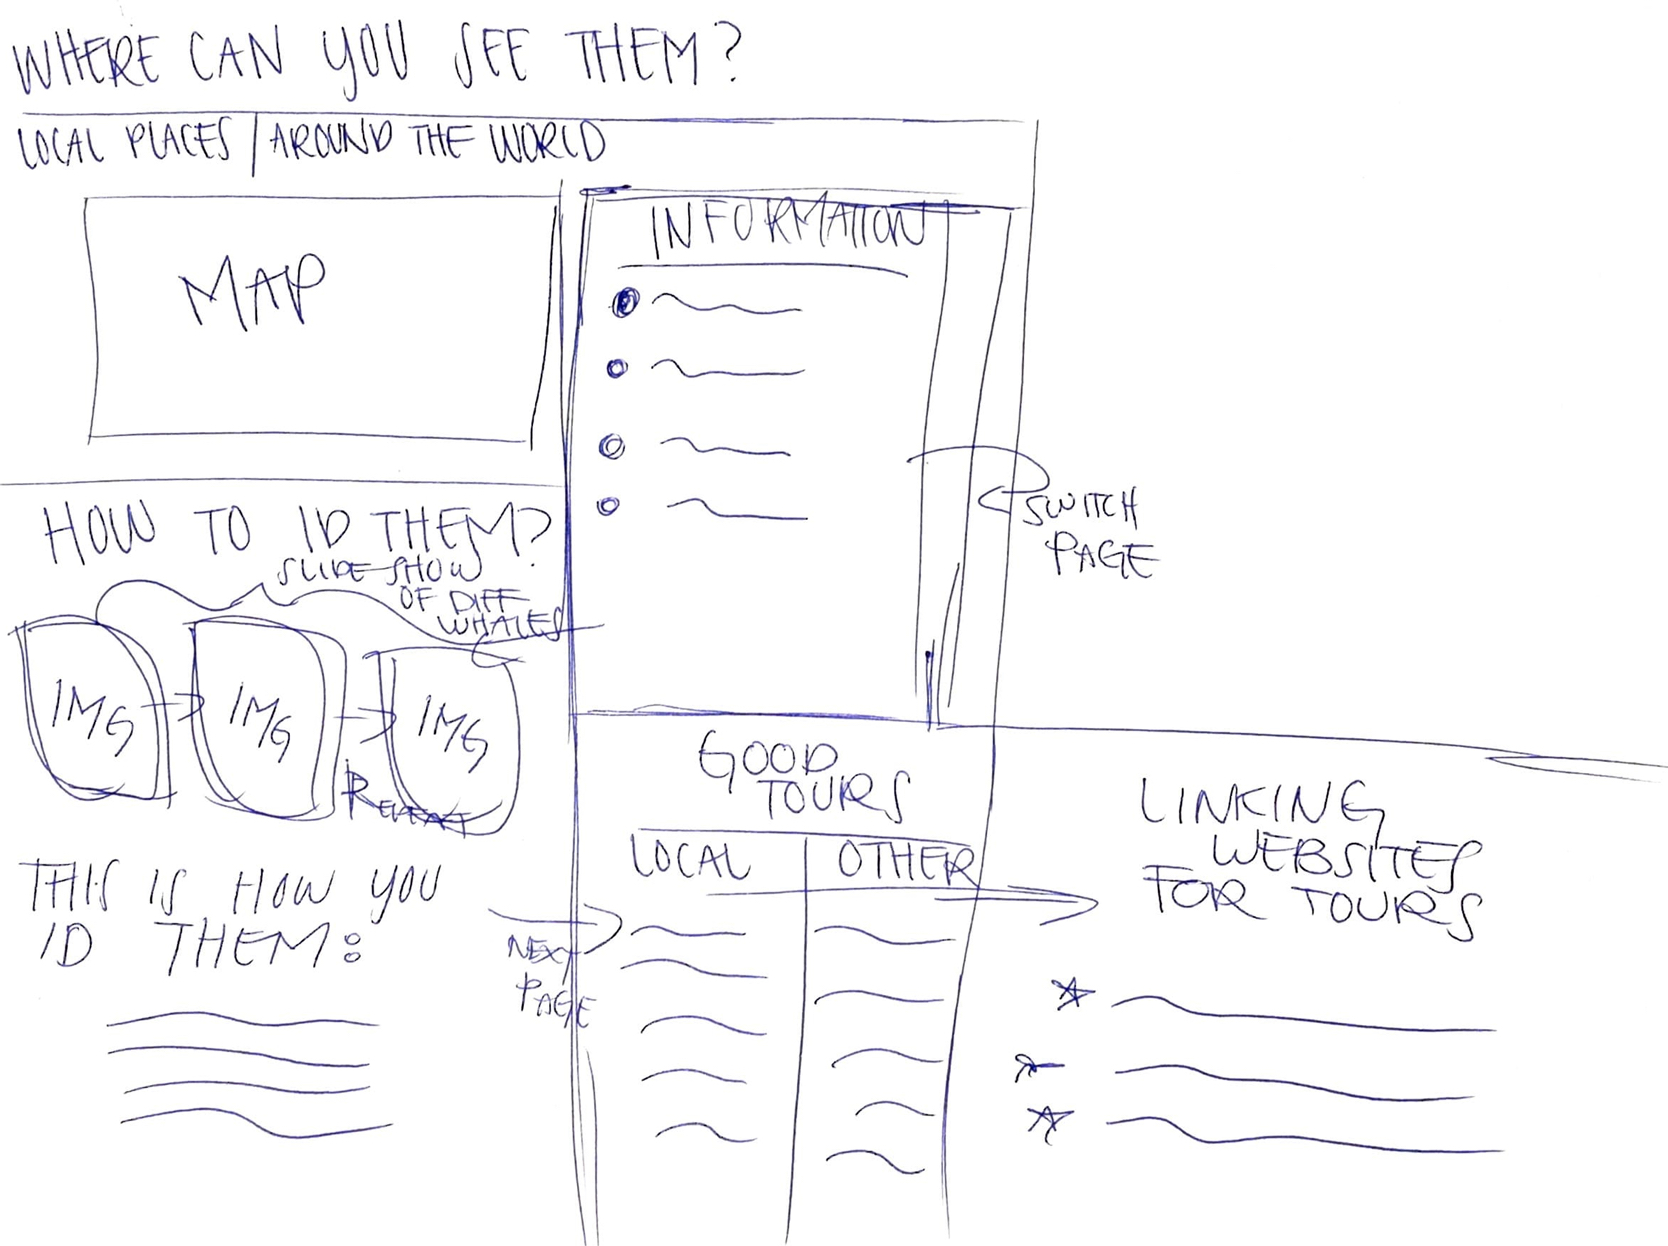 WHERE CAN YOU SEE THEM?
LOCAL PLACES / AROUND THE WORLD
MAP
INFORMATION
SWITCH
PAGE
HOW TO ID THEM?
SLIDE SHOW
OF DIFF
WHALES
IMG
IMG
IMG
REPEAT
THIS IS HOW YOU
ID THEM:
NEXT
PAGE
GOOD
TOURS
LOCAL
OTHER
LINKING
WEBSITES
FOR TOURS